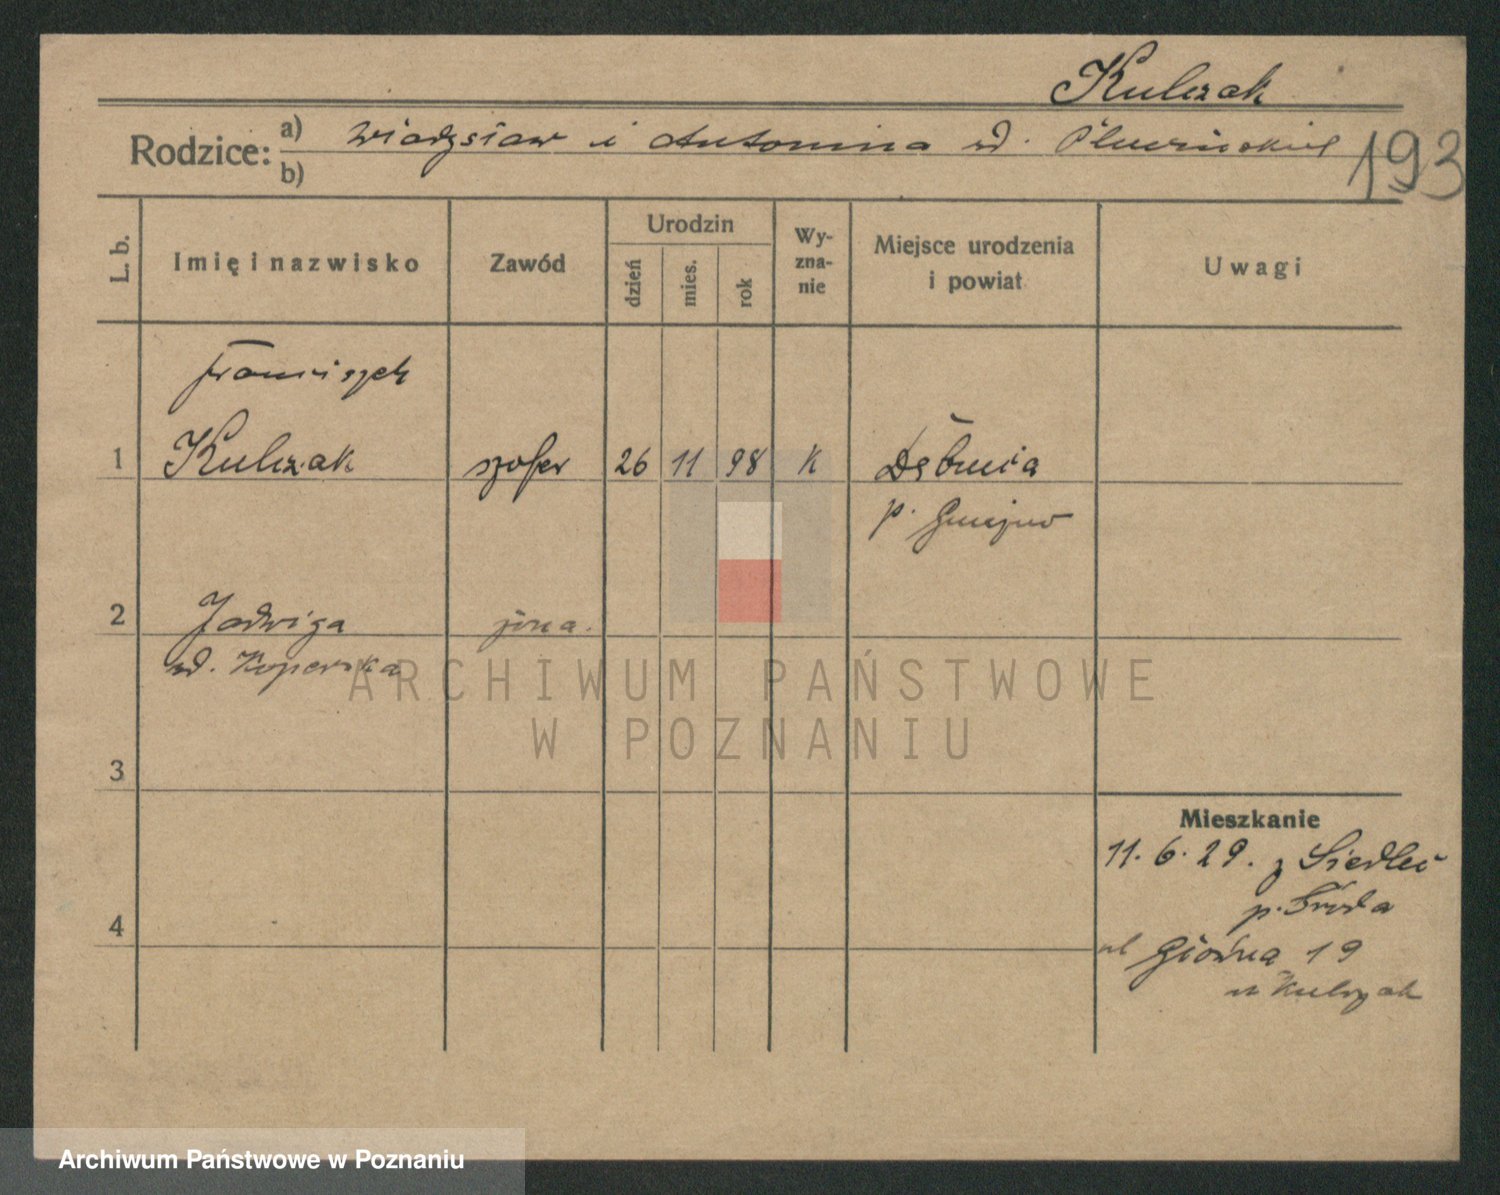 Kulczak
Rodzice: a) Władysław i Antonina
b)
193
L. b.
Imię i nazwisko
Zawód
Urodzin
dzień
mies.
rok
Wy-
zna-
nie
Miejsce urodzenia
i powiat
Uwagi
Franciszek
1 Kulczak szofer 26 11 98 K Dębnica
p. Gniezno
2 Jadwiga żona.
Koperska
3
4
Mieszkanie
11.6.29. z Siedlec
p. Środa
ul Główna 19
u Kulczak
ARCHIWUM PAŃSTWOWE
W POZNANIU
Archiwum Państwowe w Poznaniu